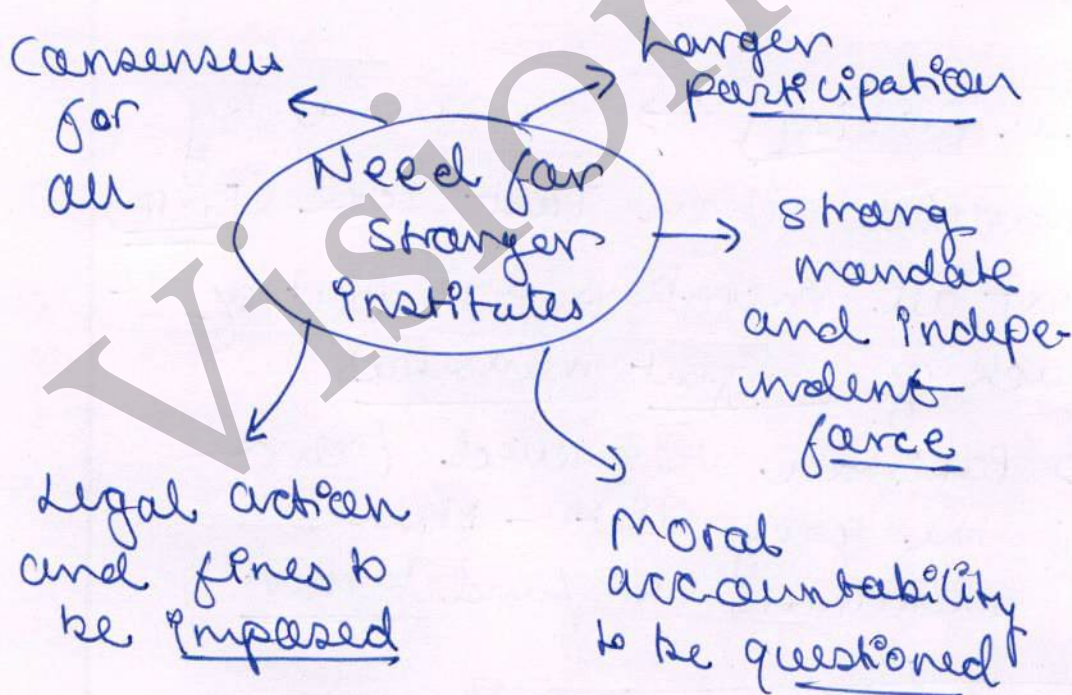 Consensus
for
all
Larger
participation
Need for
stronger
institutes
strong
mandate
and indepe-
ndent
force
Legal action
and fines to
be imposed
Moral
accountability
to be questioned
Vision